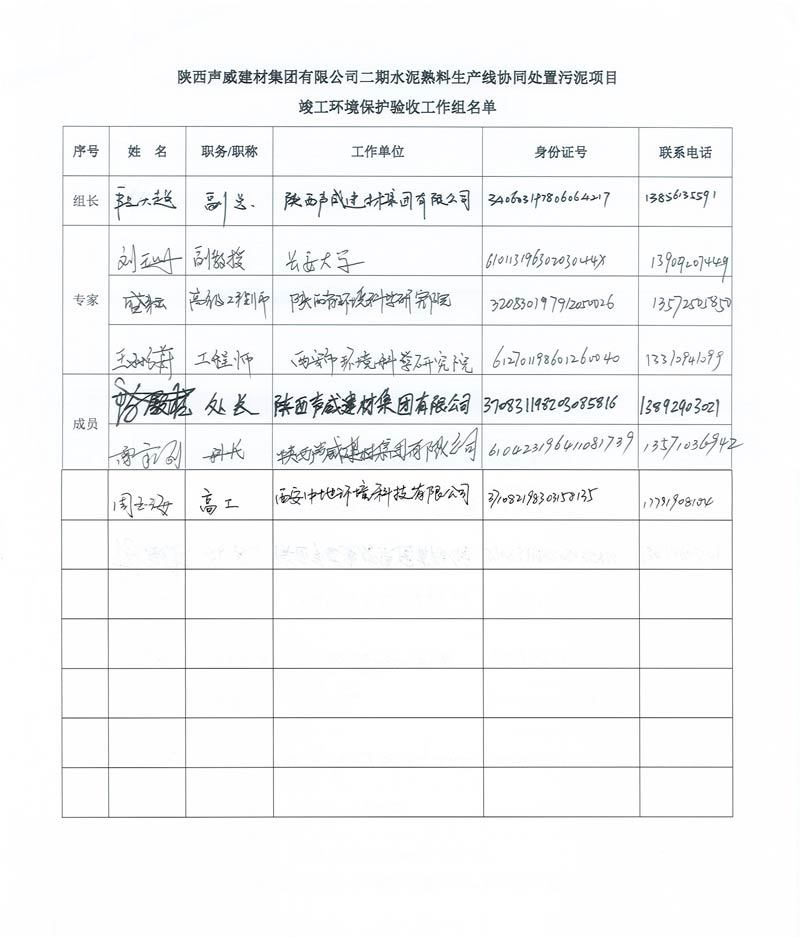 陕西声威建材集团有限公司二期水泥熟料生产线协同处置污泥项目
竣工环境保护验收工作组名单
序号 姓 名 职务/职称 工作单位 身份证号 联系电话
组长 副总 陕西声威建材集团有限公司 340603197806064217 13856135591
副教授 长安大学 61011319630203044X 13909207449
专家 盛 高级工程师 陕西省环境科学研究院 320830197912050026 13572505850
工程师 西安市环境科学研究院 612701198601260040 13310941099
成员 处长 陕西声威建材集团有限公司 370831198203085816 13892903021
科长 陕西声威建材集团有限公司 610423196411081739 13571036942
周玉海 高工 西安中地环境科技有限公司 371082198303158135